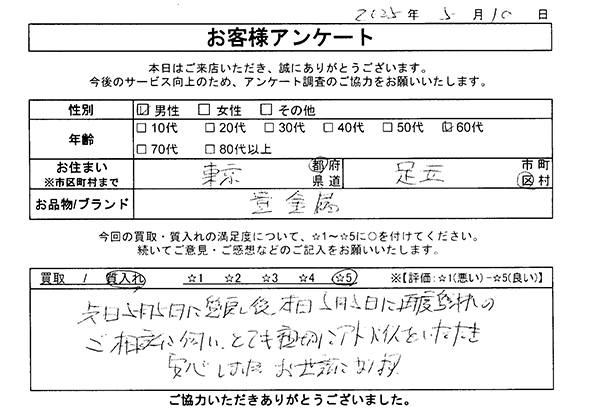 2025年 5月10日
お客様アンケート
本日はご来店いただき、誠にありがとうございます。
今後のサービス向上のため、アンケート調査のご協力をお願いいたします。
性別 ☑男性 □女性 □その他
年齢 □10代 □20代 □30代 □40代 □50代 ☑60代
□70代 □80代以上
お住まい ※市区町村まで 東京 都府県道 足立 市町区村
お品物/ブランド 貴金属
今回の買取・質入れの満足度について、☆1～☆5に○を付けてください。
続いてご意見・ご感想などのご記入をお願いいたします。
買取 / 質入れ ☆1 ☆2 ☆3 ☆4 ☆5 ※【評価:☆1(悪い)-☆5(良い)】
先日5月5日に 後、本日5月 日に再度 の
ご相談に伺い、とても親切にアドバイスをいただき
安心しました お世話になります
ご協力いただきありがとうございました。